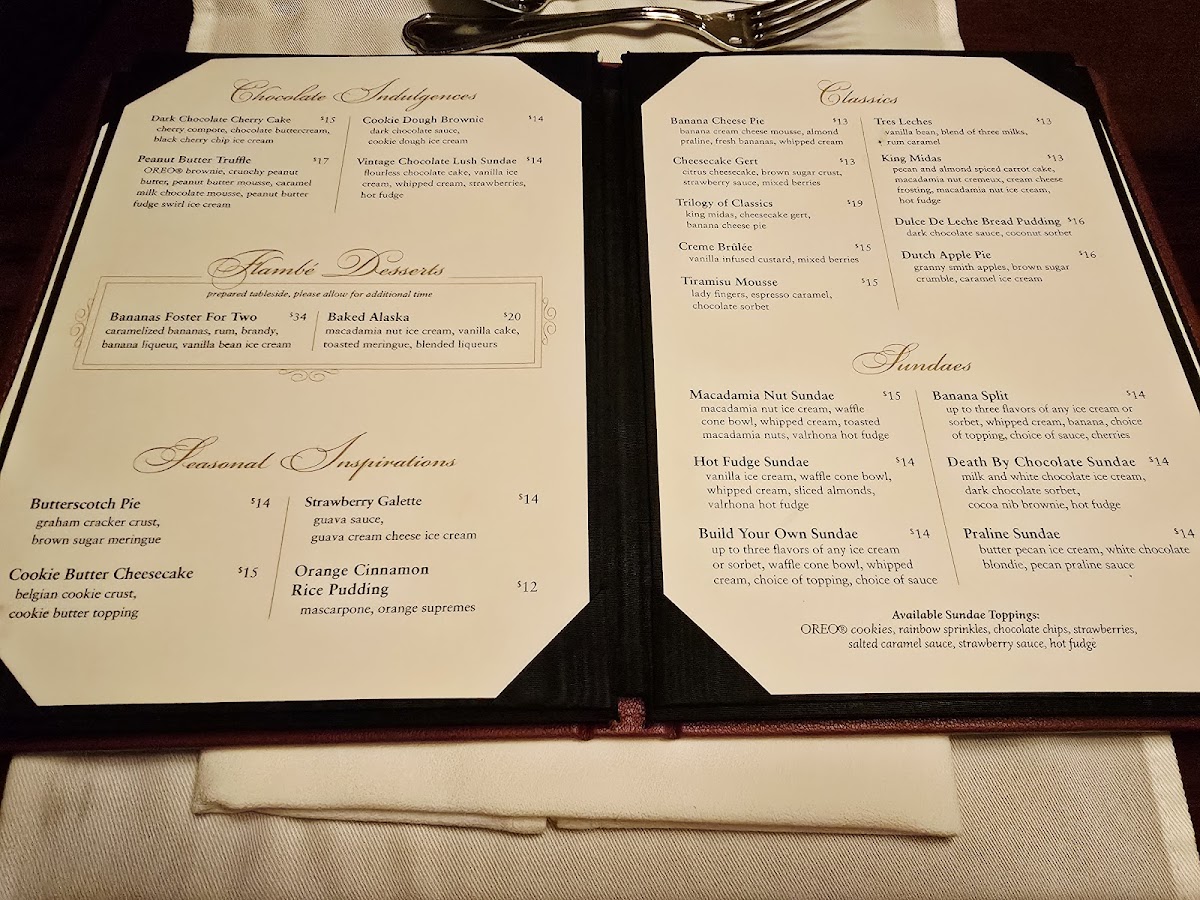 Chocolate Indulgences
Dark Chocolate Cherry Cake $15
cherry compote, chocolate buttercream,
black cherry chip ice cream
Peanut Butter Truffle $17
OREO® brownie, crunchy peanut
butter, peanut butter mousse, caramel
milk chocolate mousse, peanut butter
fudge swirl ice cream
Cookie Dough Brownie $14
dark chocolate sauce,
cookie dough ice cream
Vintage Chocolate Lush Sundae $14
flourless chocolate cake, vanilla ice
cream, whipped cream, strawberries,
hot fudge
Flambé Desserts
prepared tableside, please allow for additional time
Bananas Foster For Two $34
caramelized bananas, rum, brandy,
banana liqueur, vanilla bean ice cream
Baked Alaska $20
macadamia nut ice cream, vanilla cake,
toasted meringue, blended liqueurs
Seasonal Inspirations
Butterscotch Pie $14
graham cracker crust,
brown sugar meringue
Cookie Butter Cheesecake $15
belgian cookie crust,
cookie butter topping
Strawberry Galette $14
guava sauce,
guava cream cheese ice cream
Orange Cinnamon
Rice Pudding $12
mascarpone, orange supremes
Classics
Banana Cheese Pie $13
banana cream cheese mousse, almond
praline, fresh bananas, whipped cream
Cheesecake Gert $13
citrus cheesecake, brown sugar crust,
strawberry sauce, mixed berries
Trilogy of Classics $19
king midas, cheesecake gert,
banana cheese pie
Creme Brûlée $15
vanilla infused custard, mixed berries
Tiramisu Mousse $15
lady fingers, espresso caramel,
chocolate sorbet
Tres Leches $13
vanilla bean, blend of three milks,
rum caramel
King Midas $13
pecan and almond spiced carrot cake,
macadamia nut cremeux, cream cheese
frosting, macadamia nut ice cream,
hot fudge
Dulce De Leche Bread Pudding $16
dark chocolate sauce, coconut sorbet
Dutch Apple Pie $16
granny smith apples, brown sugar
crumble, caramel ice cream
Sundaes
Macadamia Nut Sundae $15
macadamia nut ice cream, waffle
cone bowl, whipped cream, toasted
macadamia nuts, valrhona hot fudge
Hot Fudge Sundae $14
vanilla ice cream, waffle cone bowl,
whipped cream, sliced almonds,
valrhona hot fudge
Build Your Own Sundae $14
up to three flavors of any ice cream
or sorbet, waffle cone bowl, whipped
cream, choice of topping, choice of sauce
Banana Split $14
up to three flavors of any ice cream or
sorbet, whipped cream, banana, choice
of topping, choice of sauce, cherries
Death By Chocolate Sundae $14
milk and white chocolate ice cream,
dark chocolate sorbet,
cocoa nib brownie, hot fudge
Praline Sundae $14
butter pecan ice cream, white chocolate
blondie, pecan praline sauce
Available Sundae Toppings:
OREO® cookies, rainbow sprinkles, chocolate chips, strawberries,
salted caramel sauce, strawberry sauce, hot fudge